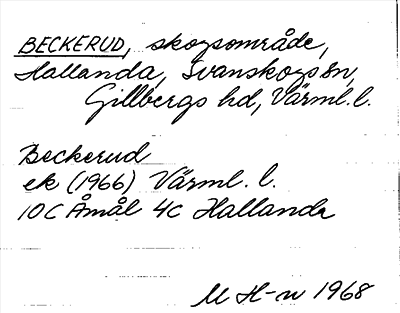 BECKERUD, skogsområde,
Hallanda, Svanskogs sn,
Gillbergs hd, Värml. l.
Beckerud
ek (1966) Värml. l.
10C Åmål 4c Hallanda
M H-n 1968